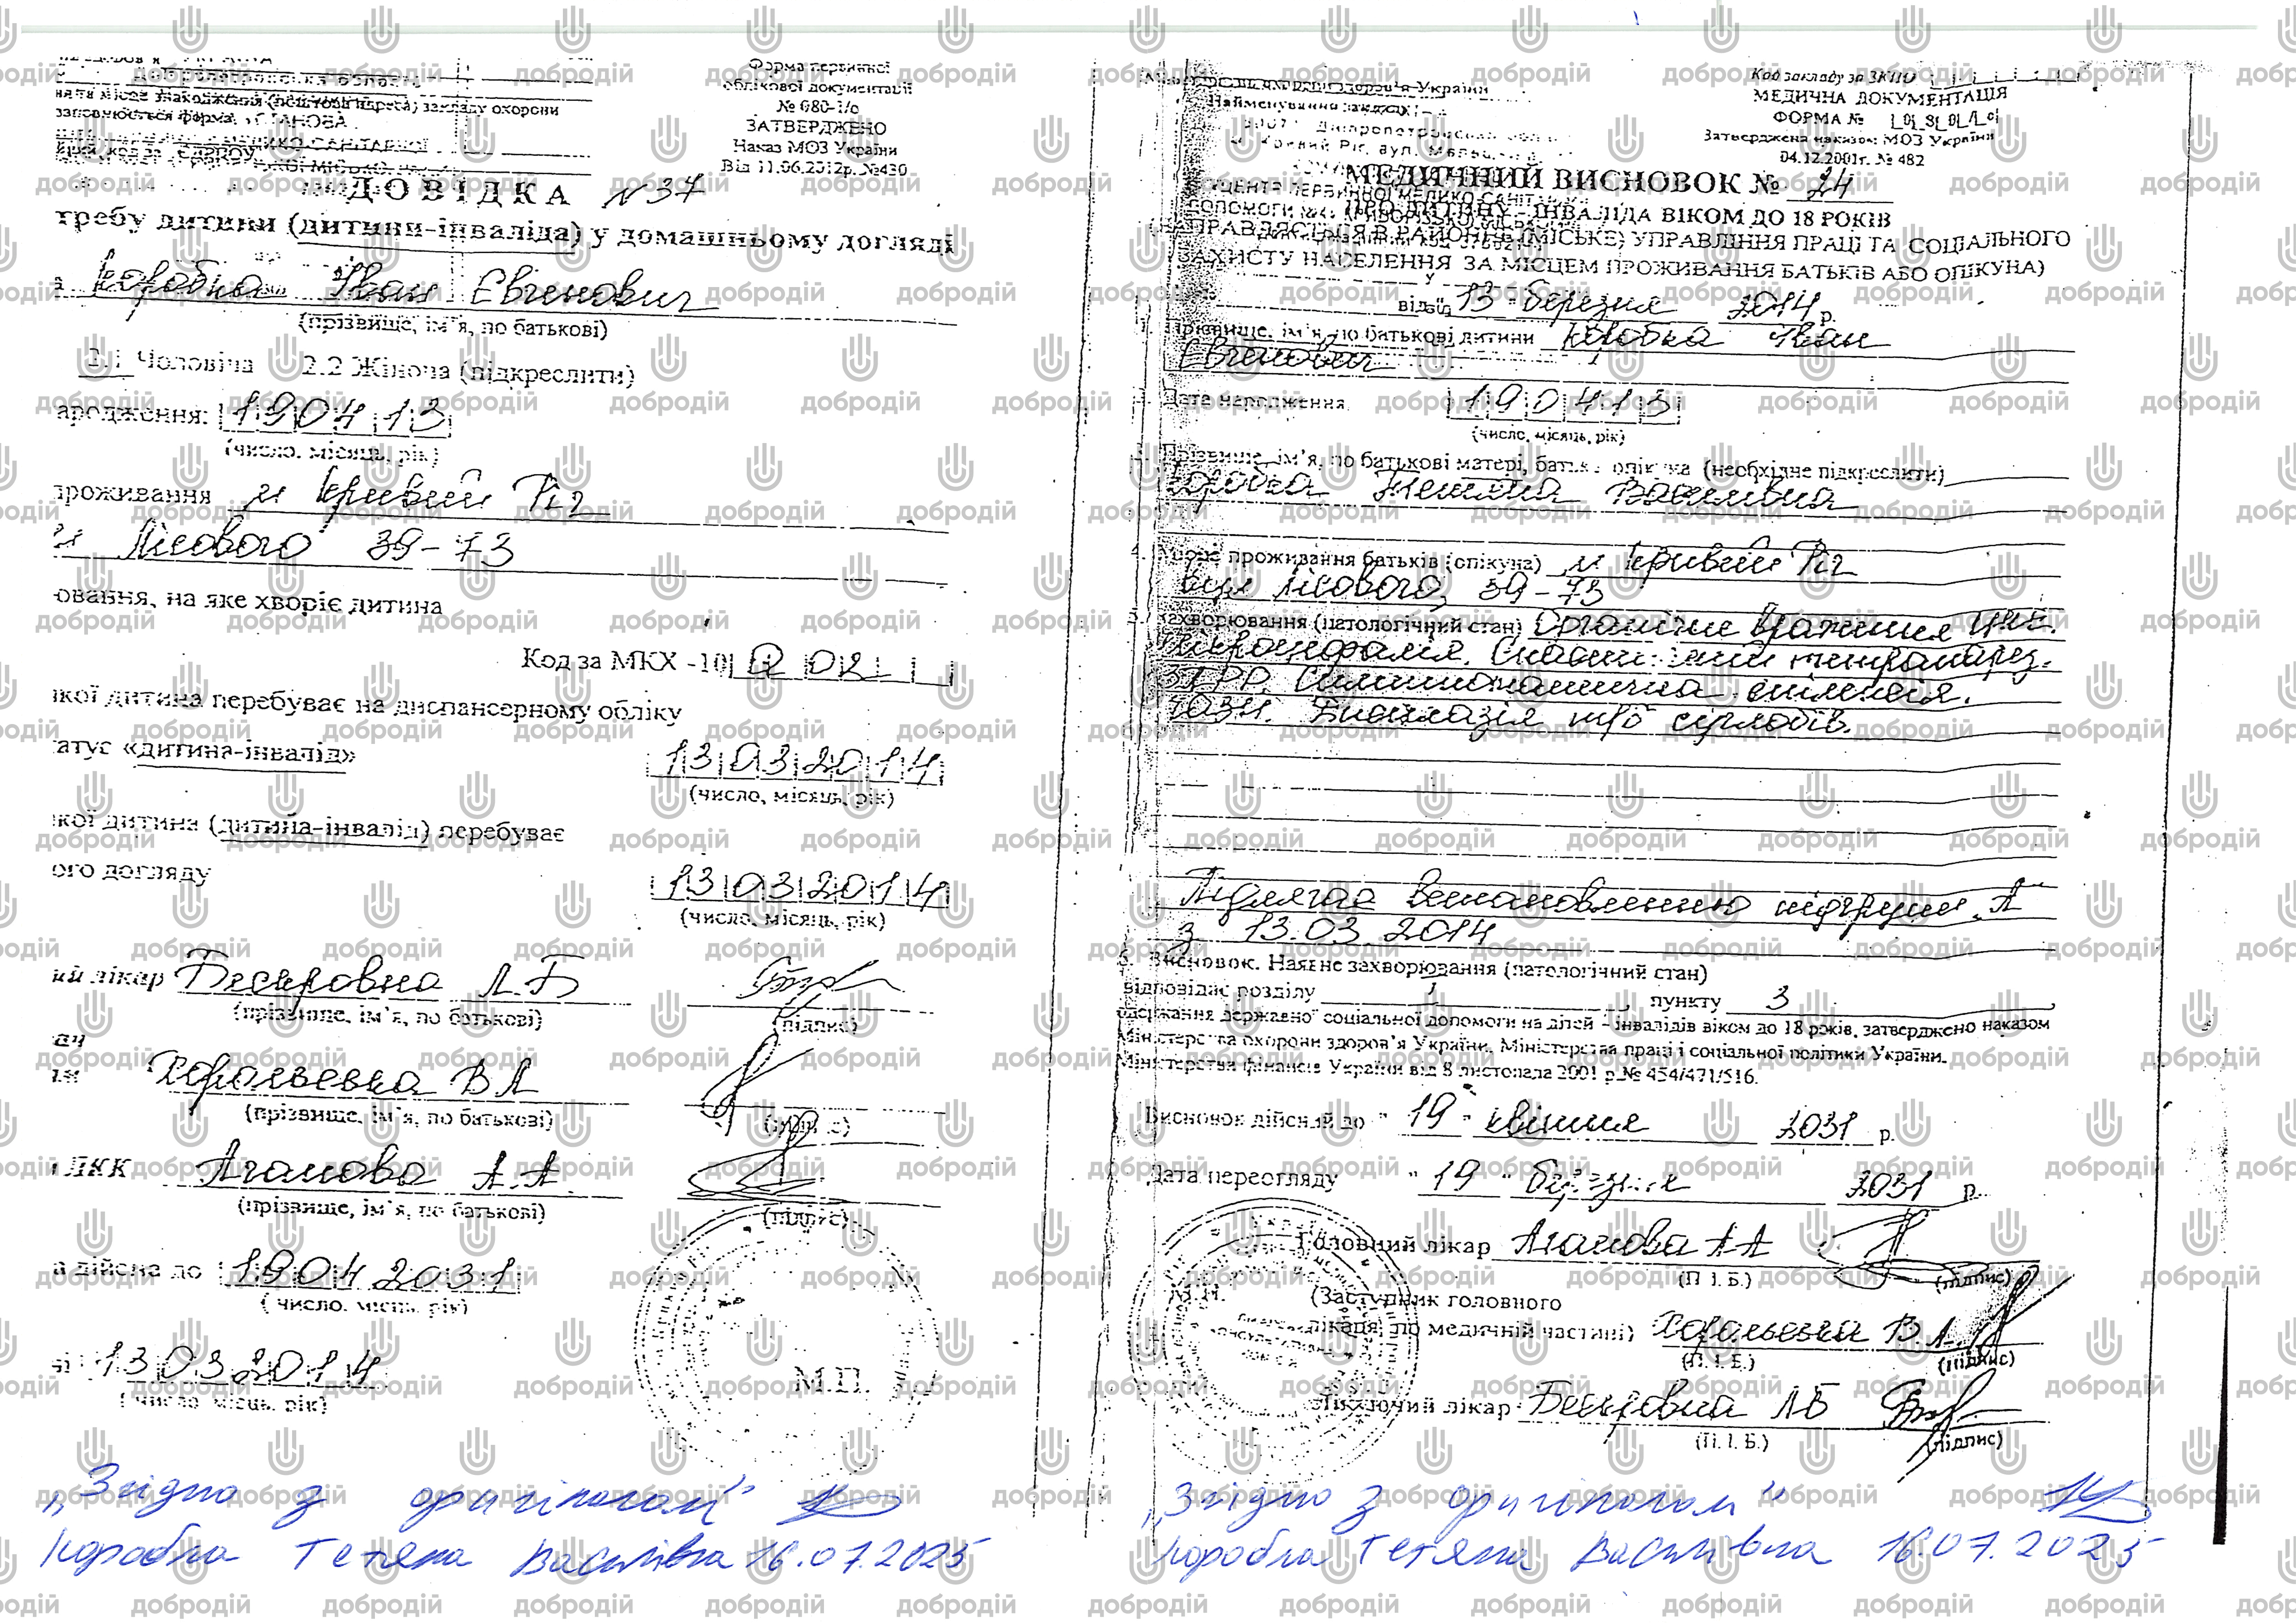 Форма первинної
облікової документації
№ 080-1/о
ЗАТВЕРДЖЕНО
Наказ МОЗ України
Від 11.06.2012р. №430
місце знаходження (поштова адреса) закладу охорони
заповнюється форма
ДОВІДКА №37
требу дитини (дитини-інваліда) у домашньому догляді
Коробка Іван Євгенович
(прізвище, ім'я, по батькові)
2.1 Чоловіча 2.2 Жіноча (підкреслити)
ародження: 190413
(число, місяць, рік)
проживання м Кривий Ріг
Лісового 39-73
ювання, на яке хворіє дитина
Код за МКХ -10 Q 02
якої дитина перебуває на диспансерному обліку
татус «дитина-інвалід» 13032014
(число, місяць, рік)
якої дитина (дитина-інвалід) перебуває
ого догляду 13032014
(число, місяць, рік)
ий лікар Бескровна Л.Б
(прізвище, ім'я, по батькові) (підпис)
В А
(прізвище, ім'я, по батькові) (підпис)
ЛКК Агапова А.А.
(прізвище, ім'я, по батькові) (підпис)
а дійсна до 19042031
(число, місяць, рік)
13032014
(число, місяць, рік)
М.П.
„Згідно з оригіналом"
Коробка Тетяна Василівна 16.07.2025
Код закладу за ЗКПО
МЕДИЧНА ДОКУМЕНТАЦІЯ
ФОРМА №
Затверджена наказом МОЗ України
04.12.2001г. № 482
охорони здоров'я України
Найменування закладу
МЕДИЧНИЙ ВИСНОВОК № 24
ПРО ДИТИНУ - ІНВАЛІДА ВІКОМ ДО 18 РОКІВ
(НАПРАВЛЯЄТЬСЯ В РАЙОННЕ (МІСЬКЕ) УПРАВЛІННЯ ПРАЦІ ТА СОЦІАЛЬНОГО
ЗАХИСТУ НАСЕЛЕННЯ ЗА МІСЦЕМ ПРОЖИВАННЯ БАТЬКІВ АБО ОПІКУНА)
від 13 березня 2014 р.
1. Прізвище, ім'я, по батькові дитини Коробка Іван
Євгенович
Дата народження 190413
(число, місяць, рік)
Прізвище, ім'я, по батькові матері, батька опікуна (необхідне підкреслити)
Коробка Тетяна Василівна
4. Адреса проживання батьків (опікуна) м Кривий Ріг
вул Лісового, 39-73
Захворювання (патологічний стан) Органічне враження ЦНС.
Мікроцефалія. тетрапарез.
ЗПРР. Симптоматична епілепсія.
Дисплазія т/б суглобів.
Підлягає встановленню підгрупи „А"
з 13.03.2014
6. Висновок. Наявне захворювання (патологічний стан)
відповідає розділу 1, пункту 3
одержання державної соціальної допомоги на дітей - інвалідів віком до 18 років, затверджено наказом
Міністерства охорони здоров'я України, Міністерства праці і соціальної політики України,
Міністерства фінансів України від 8 листопада 2001 р.№ 454/471/516.
Висновок дійсний до "19" квітня 2031 р.
Дата переогляду "19" березня 2031 р.
Головний лікар Агапова А А
(П. І. Б.) (підпис)
М.П.
(Заступник головного
лікаря по медичній частині)
(П. І. Б.) (підпис)
Лікуючий лікар Бескровна Л Б
(П. І. Б.) (підпис)
„Згідно з оригіналом"
Коробка Тетяна Василівна 16.07.2025
добродій